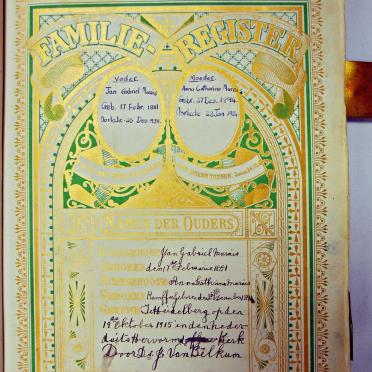 FAMILIE-REGISTER
Vader
Jan Gabriel Marais
Geb. 17 Febr. 1891
Oorlede - 30 Des 1938.
Moeder.
Anna Catharina Marais
Gebr. 27 Des. 1894.
Oorlede 22 Jan 1924
DER OUDERS
Jan Gabriel Marais
den 17de Februarie 1891
Anna Cathrina Marais
GEBOREN
Te Heidelberg op den
19de Oktober 1915 in de neder
duits Hervormde Kerk
Door Ds. J. Van Belkum